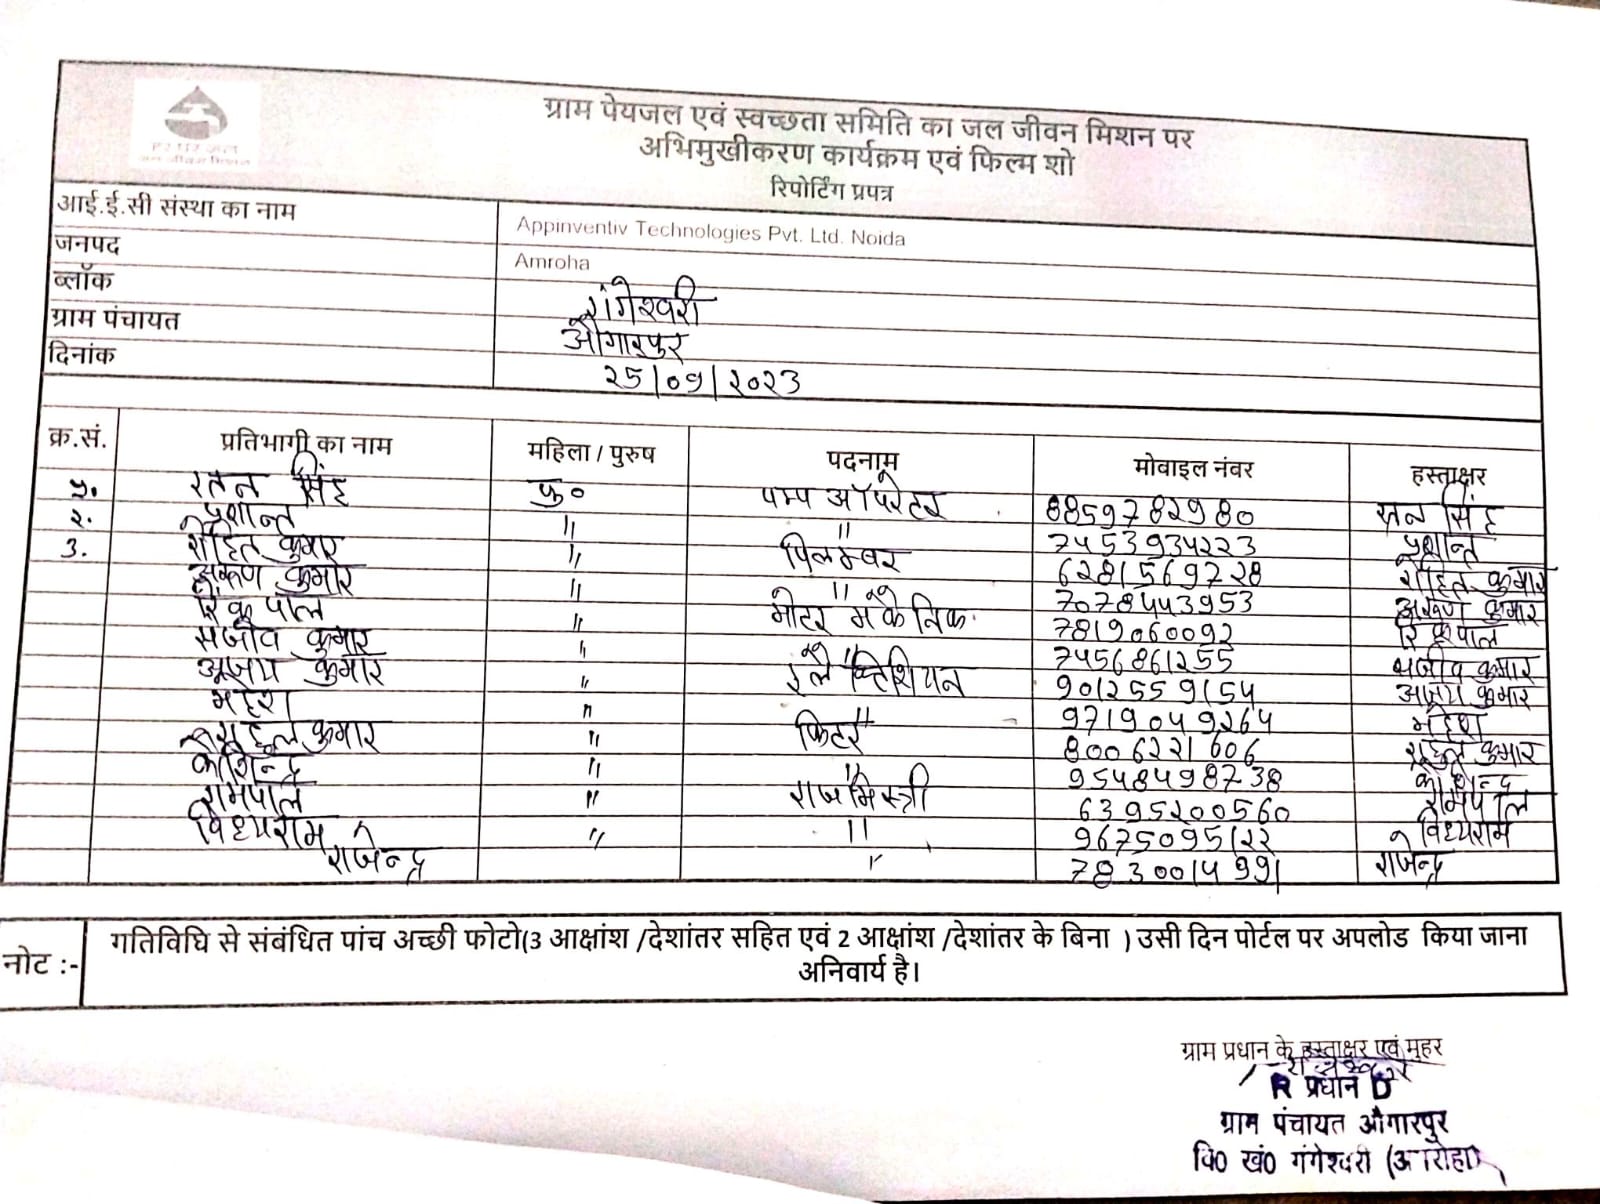 हर घर जल
जल जीवन मिशन
ग्राम पेयजल एवं स्वच्छता समिति का जल जीवन मिशन पर
अभिमुखीकरण कार्यक्रम एवं फिल्म शो
रिपोर्टिंग प्रपत्र
आई.ई.सी संस्था का नाम Appinventiv Technologies Pvt. Ltd. Noida
जनपद Amroha
ब्लॉक गंगेश्वरी
ग्राम पंचायत औगारपुर
दिनांक २5/09/२0२3
क्र.सं. प्रतिभागी का नाम महिला / पुरुष पदनाम मोबाइल नंवर हस्ताक्षर
१. रतन सिंह पु० पम्प ऑपरेटर 88597८२9८0 रतन सिंह
२. प्रशान्त " " 7453934२२3 प्रशान्त
3. रोहित कुमार " पिलम्बर 62815697२8 रोहित कुमार
अरुण कुमार " " 7078443953 अरुण कुमार
रिंकू पाल " मोटर मैकेनिक 7819060092 रिंकू पाल
संजीव कुमार " " 7456861२55 संजीव कुमार
अजय कुमार " इलैक्ट्रिशियन 9012559154 अजय कुमार
महेश " " 9719049२64 महेश
राहुल कुमार " फिटर 8006२२1606 राहुल कुमार
" " 9548498738
रामपाल " राजमिस्त्री 6395२00560 रामपाल
विध्याराम " " 96750951२२ विध्याराम
राजेन्द्र " 7830014991 राजेन्द्र
नोट :- गतिविधि से संबंधित पांच अच्छी फोटो(3 आक्षांश /देशांतर सहित एवं 2 आक्षांश /देशांतर के बिना ) उसी दिन पोर्टल पर अपलोड किया जाना
अनिवार्य है।
ग्राम प्रधान के हस्ताक्षर एवं मुहर
प्रधान
ग्राम पंचायत औगारपुर
वि0 खं0 गंगेश्वरी (अमरोहा)